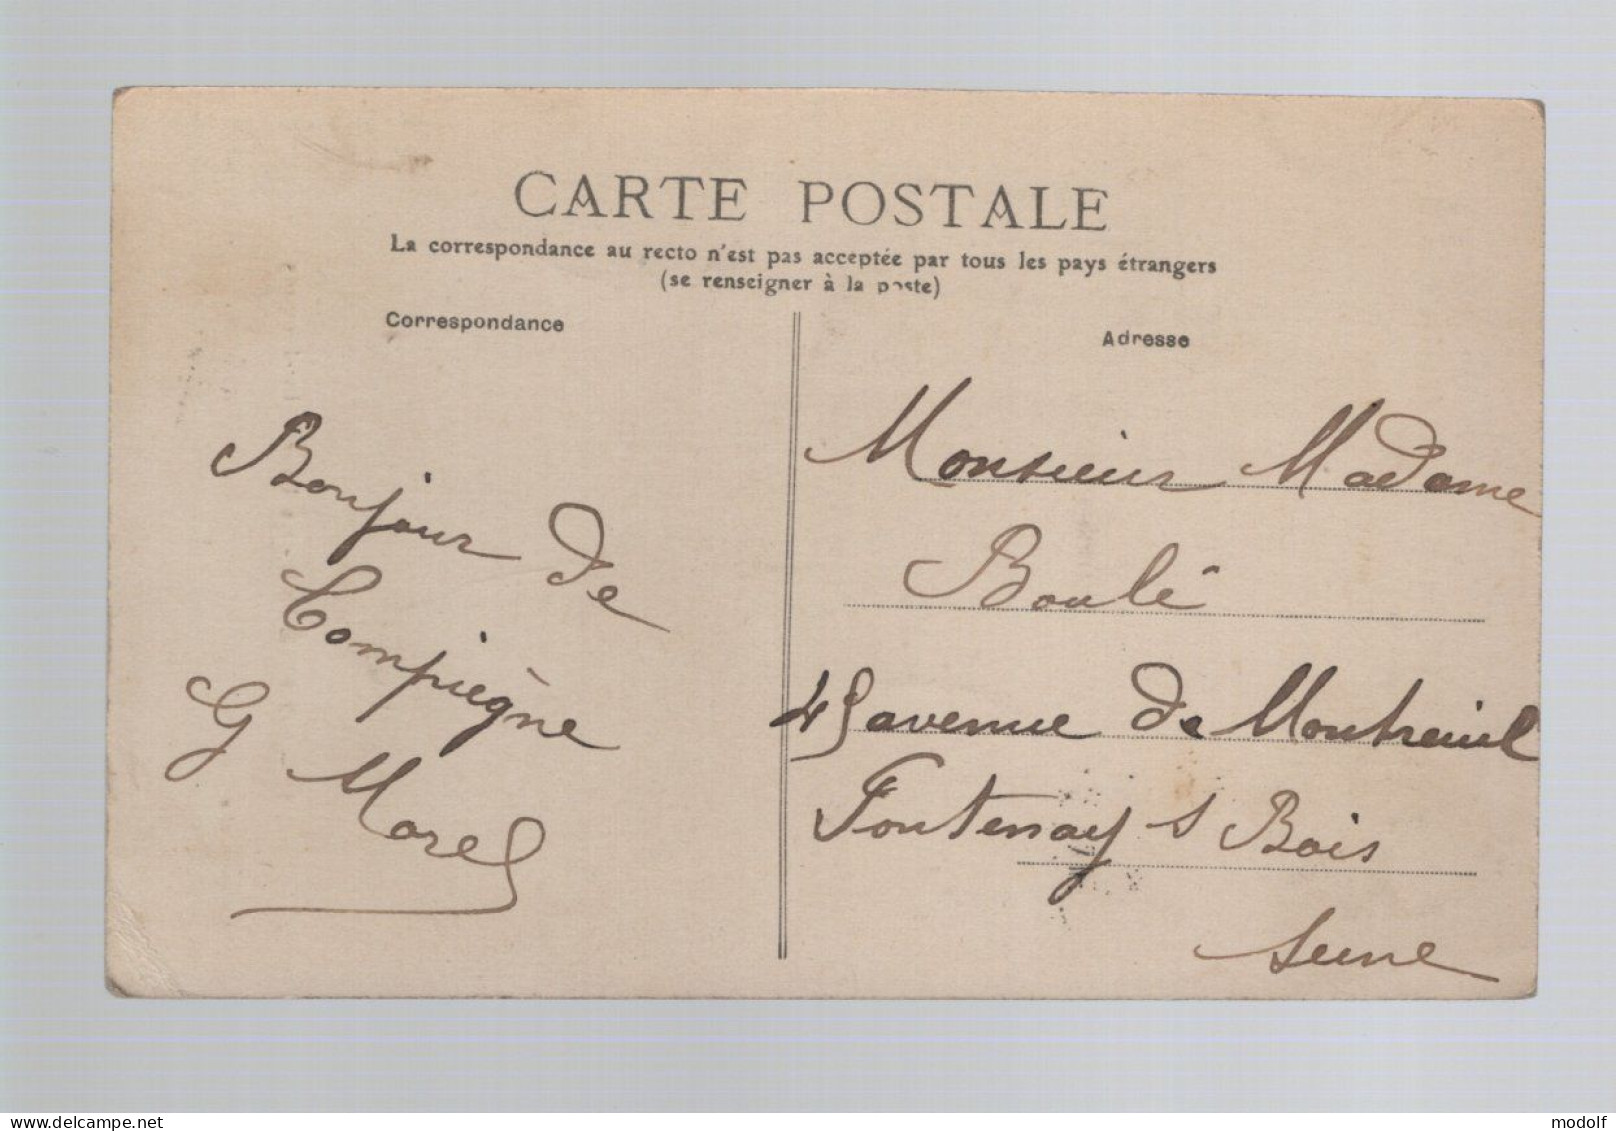 CARTE POSTALE
La correspondance au recto n'est pas acceptée par tous les pays étrangers
(se renseigner à la poste)
Correspondance
Bonjour de
Compiègne
G Morel
Adresse
Monsieur Madame
Boulé
45 avenue de Montreuil
Fontenay s Bois
Seine
modolf